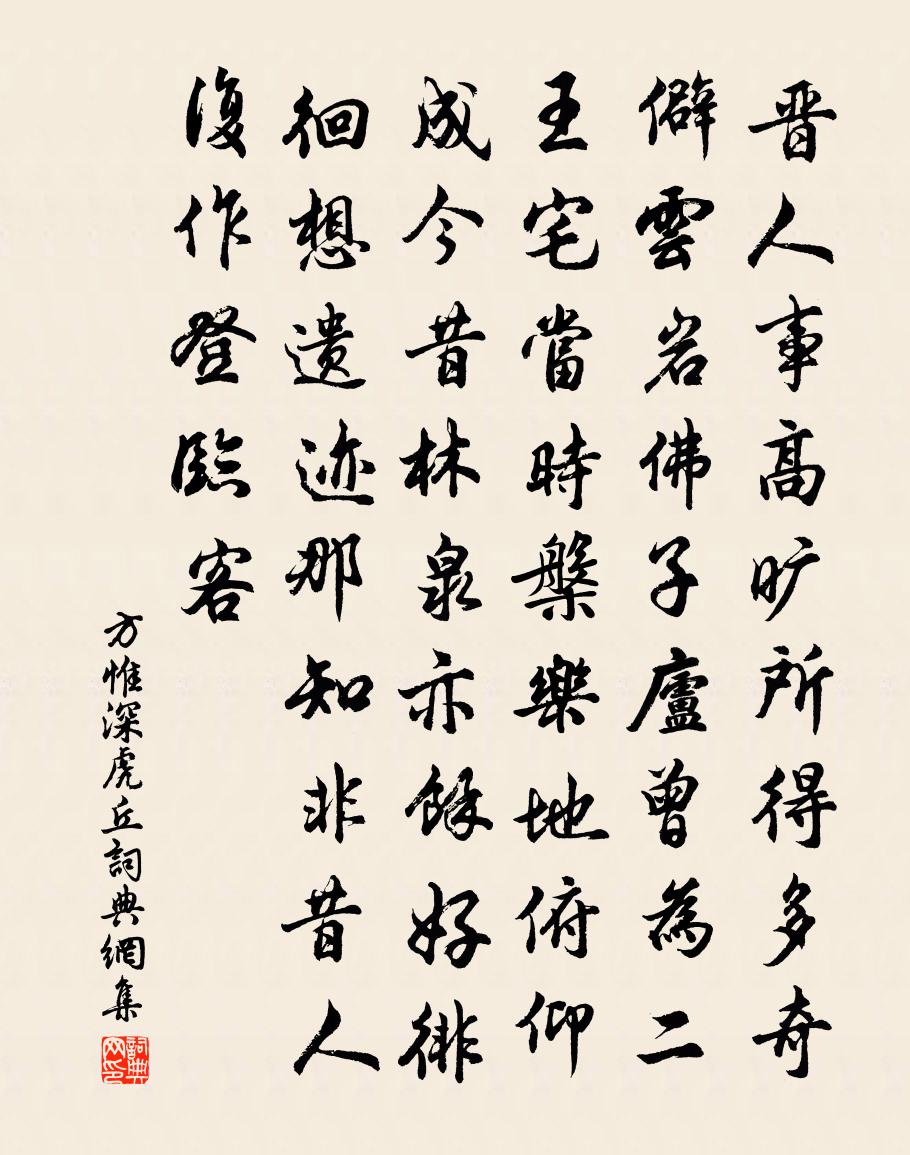 晋人事高旷所得多奇
僻雲岩佛子廬曾為二
王宅當時槃樂地俯仰
成今昔林泉亦餘好徘
徊想遗迹那知非昔人
復作登臨客
方惟深虎丘詞典網集
詞典网印